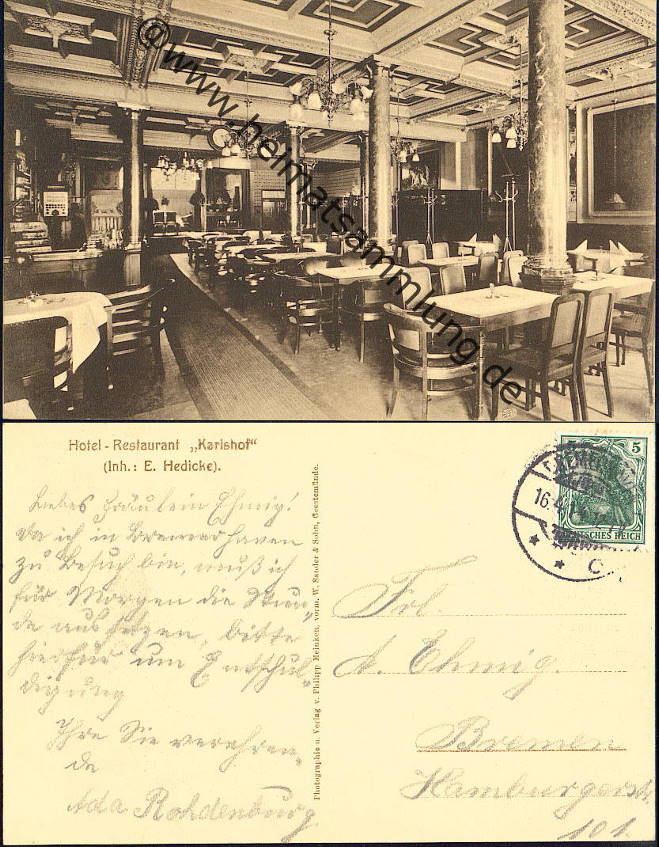 @www.heimatsammlung.de
Hotel-Restaurant „Karlshof“
(Inh.: E. Hedicke).
Liebes Fräulein Ehmig!
Da ich in Bremerhaven
zu Besuch bin, muß ich
für Morgen die Stun-
de aussetzen, bitte
hierfür um Entschul-
digung
Ihre Sie verehren-
de
Ada Rohdenburg
Photographie u. Verlag v. Philipp Meinken, vorm. W. Sander & Sohn, Geestemünde.
5
16.4.
DEUTSCHES REICH
* * C
Frl.
A. Ehmig.
Bremen
Hamburgerstr.
101.